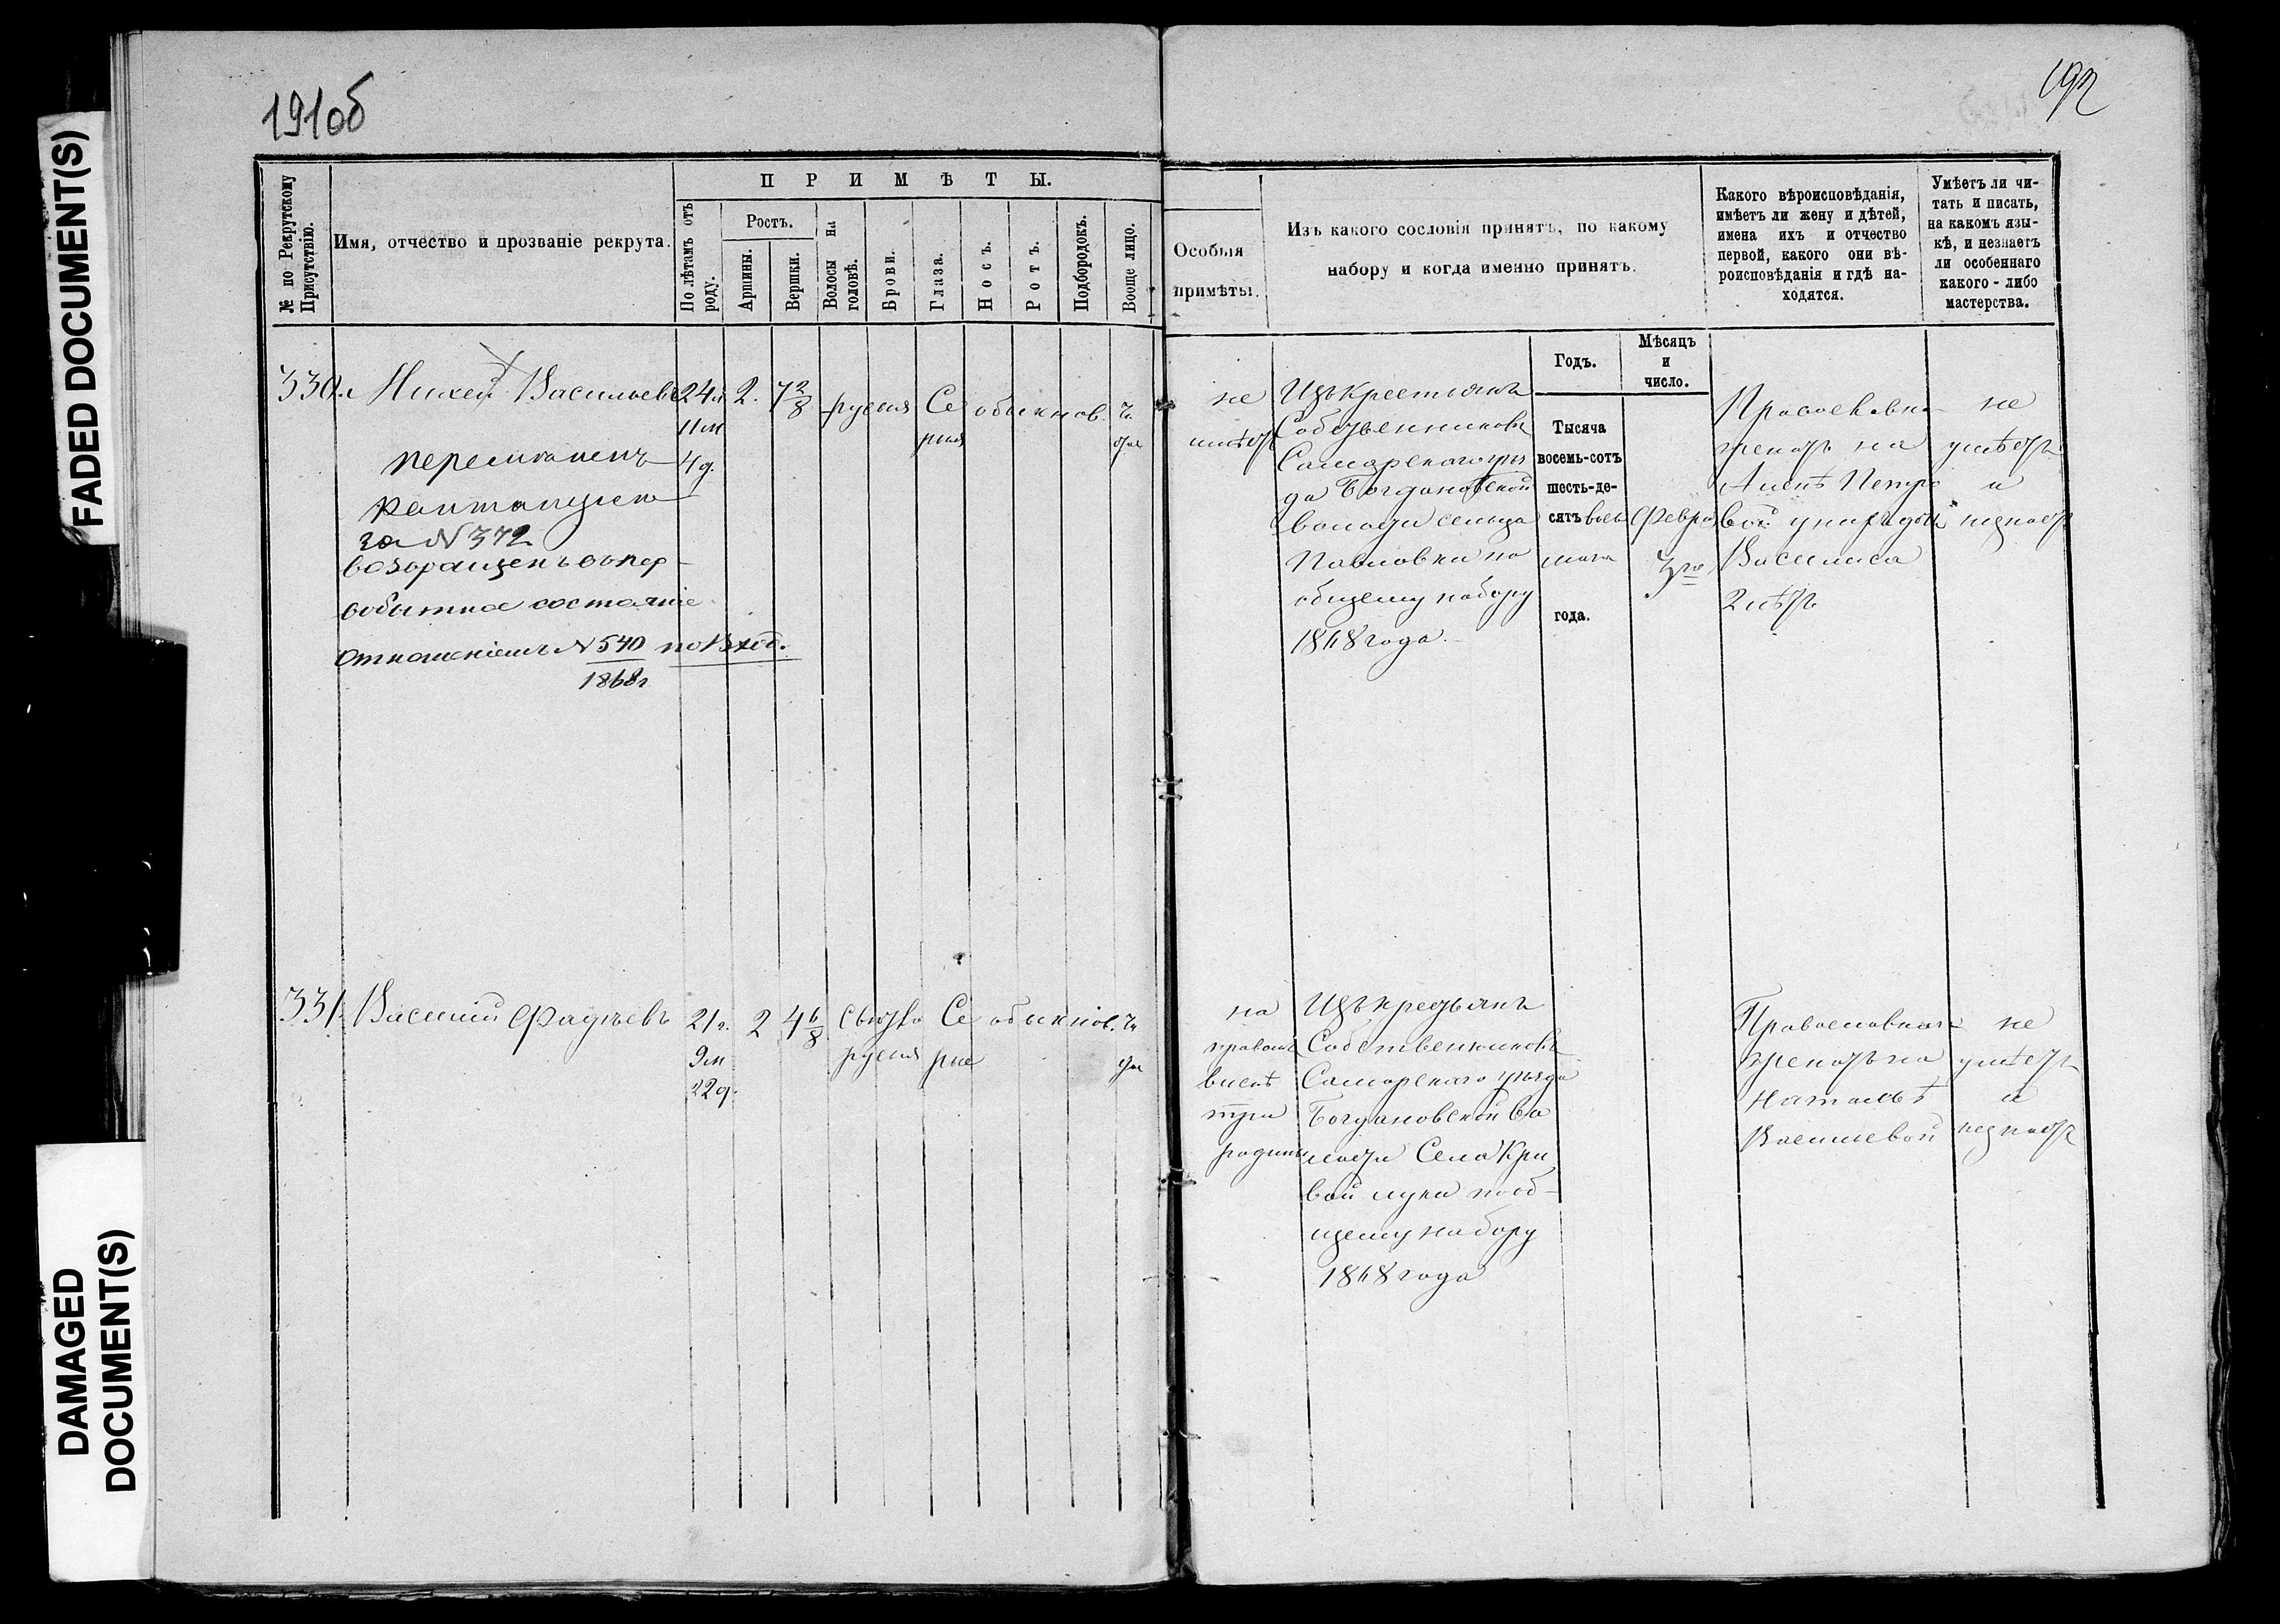 FADED DOCUMENT(S)
DAMAGED
DOCUMENT(S)
191об
192
№ по Рекрутскому
Присутствію.
Имя, отчество и прозваніе рекрута.
ПРИМѢТЫ.
По лѣтамъ отъ
роду.
Ростъ.
Аршины.
Вершки.
Волосы на
головѣ.
Брови.
Глаза.
Носъ.
Ротъ.
Подбородокъ.
Вооще лицо.
Особыя
примѣты.
Изъ какого сословія принятъ, по какому
набору и когда именно принятъ.
Какого вѣроисповѣданія,
имѣетъ ли жену и дѣтей,
имена ихъ и отчество
первой, какого они вѣ-
роисповѣданія и гдѣ на-
ходятся.
Умѣетъ ли чи-
тать и писать,
на какомъ язы-
кѣ, и незнаетъ
ли особеннаго
какого-либо
мастерства.
330.
Васильевъ
24
11м
4д.
2.
7 2/8
русыя
Се
рыя
обыкнов.
чи
стое
за N 372
возвращенъ въ пер-
вобытное состояніе
Отношеніемъ N 540 по Вход.
1868г
не
имѣетъ
Изъ Крестьянъ
Собственниковъ
Самарскаго уѣз
да Богдановской
волости сельца
Павловки по
общему набору
1868 года.
Годъ.
Тысяча
восемь-сотъ
шесть-де-
сятъ вось
маго
года.
Мѣсяцъ
и
число.
Февра
3го
Православна
женатъ на
Аннѣ Петро
вой у нихъ дочь
Василиса
2 лѣтъ
не
умѣетъ
и
незнаетъ
331.
Василій Фадѣевъ
21г.
9м
22д.
2
4 6/8
свѣтло
русыя
Се
рые
обыкнов.
чи
стое
на
правомъ
вискѣ
три
родинки
Изъ крестьянъ
Собственниковъ
Самарскаго уѣзда
Богдановской во
лости Села Кри
вой луки пооб-
щему набору
1868 года
Православна
женатъ на
Натальѣ
Васильевой
не
умѣетъ
и
незнаетъ